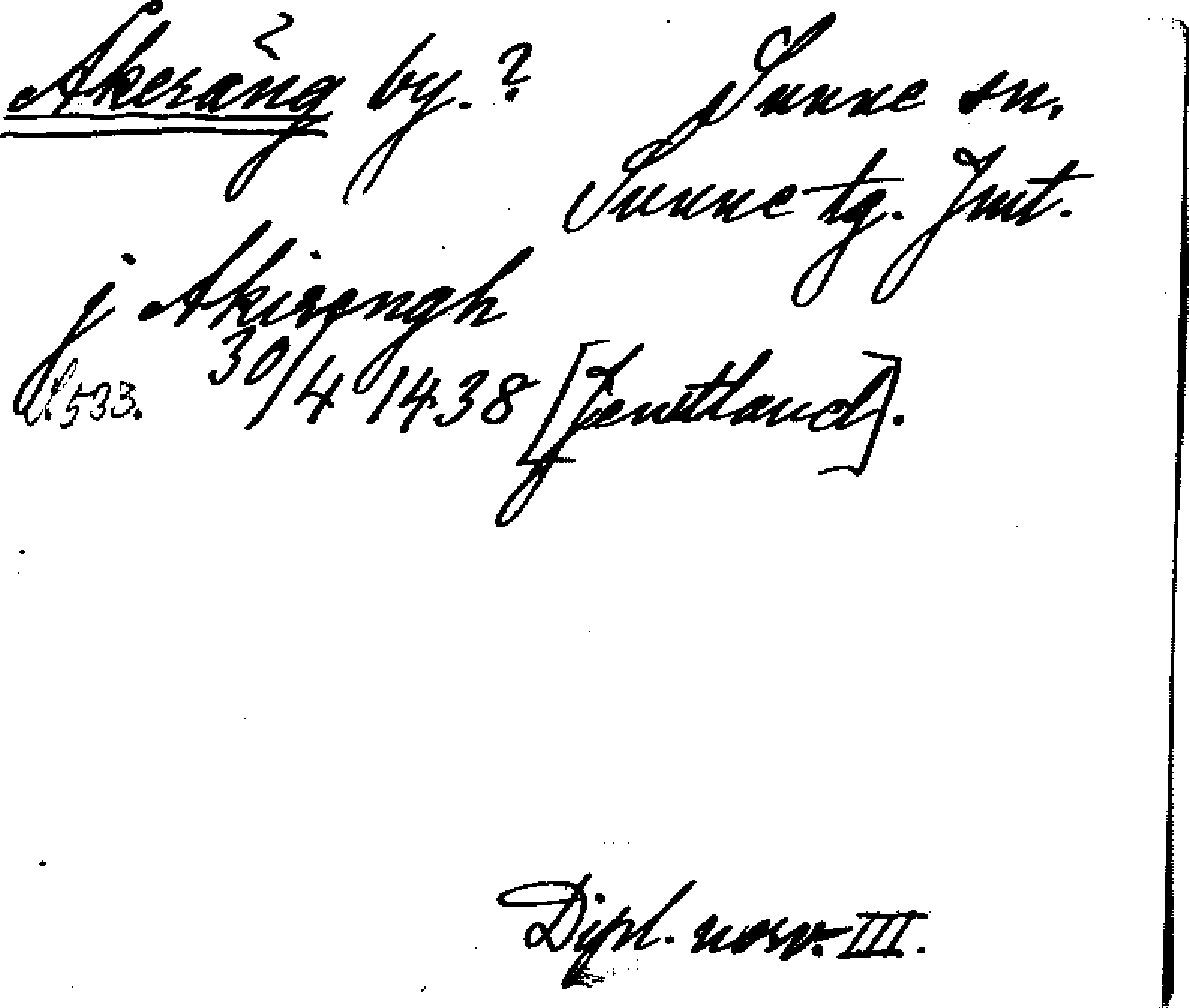 Åkeräng by.? Sunne sn.
Sunne tg. Jmt.
j Akirængh
S. 533. 30/4 1438 [Jemtland].
Dipl. norv. III.